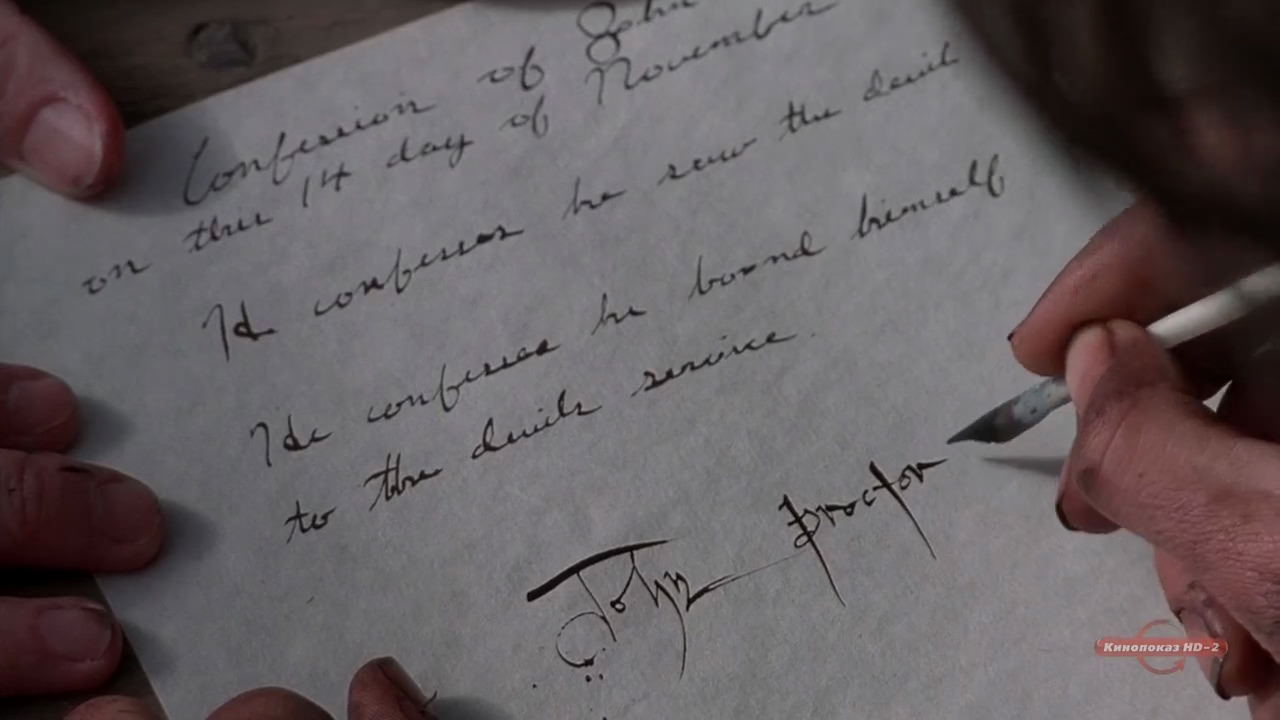 Confession of John
on this 14 day of November
He confesses he saw the devil
He confesses he bound himself
to the devils service.
John Proctor
Кинопоказ HD-2